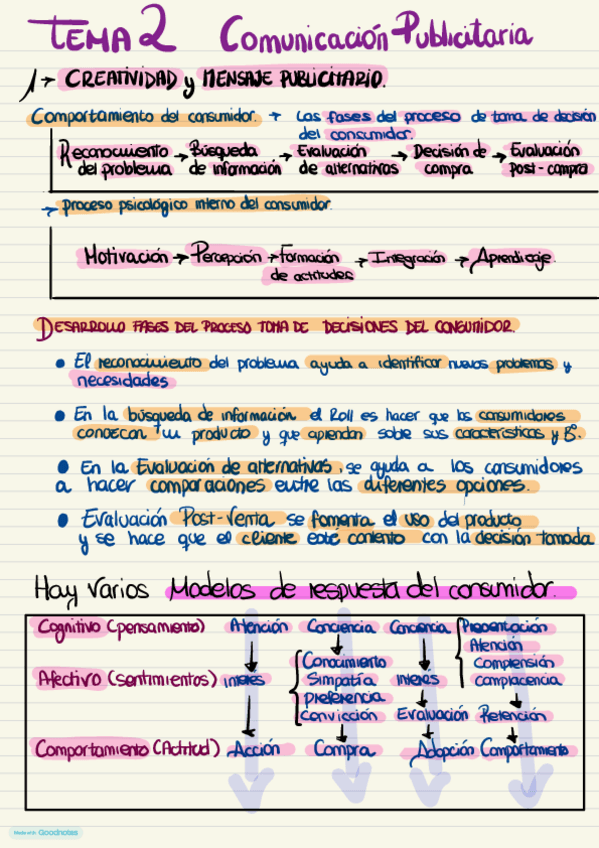 TEMA 2 Comunicación Publicitaria
1→ CREATIVIDAD y MENSAJE PUBLICITARIO.
Comportamiento del consumidor. → Las fases del proceso de toma de decisión
del consumidor.
Reconocimiento → Búsqueda → Evaluación → Decisión de → Evaluación
del problema de información de alternativas compra post-compra
→ Proceso psicológico interno del consumidor.
Motivación → Percepción → Formación → Integración → Aprendizaje.
de actitudes
DESARROLLO FASES DEL PROCESO TOMA DE DECISIONES DEL CONSUMIDOR.
• El reconocimiento del problema ayuda a identificar nuevos problemas y
necesidades
• En la búsqueda de información el Roll es hacer que los consumidores
conozcan + tu producto y que aprendan sobre sus características y Bº.
• En la Evaluación de alternativas, se ayuda a los consumidores
a hacer comparaciones entre las diferentes opciones.
• Evaluación Post-Venta se fomenta el uso del producto
y se hace que el cliente esté contento con la decisión tomada
Hay varios Modelos de respuesta del consumidor.
Cognitivo (pensamiento) Atención Conciencia Conciencia Presentación
Atención
Conocimiento Comprensión
Afectivo (sentimientos) interes Simpatía interes complacencia
preferencia
convicción Evaluación Retención
Comportamiento (Actitud) Acción Compra Adopción Comportamiento
Made with Goodnotes